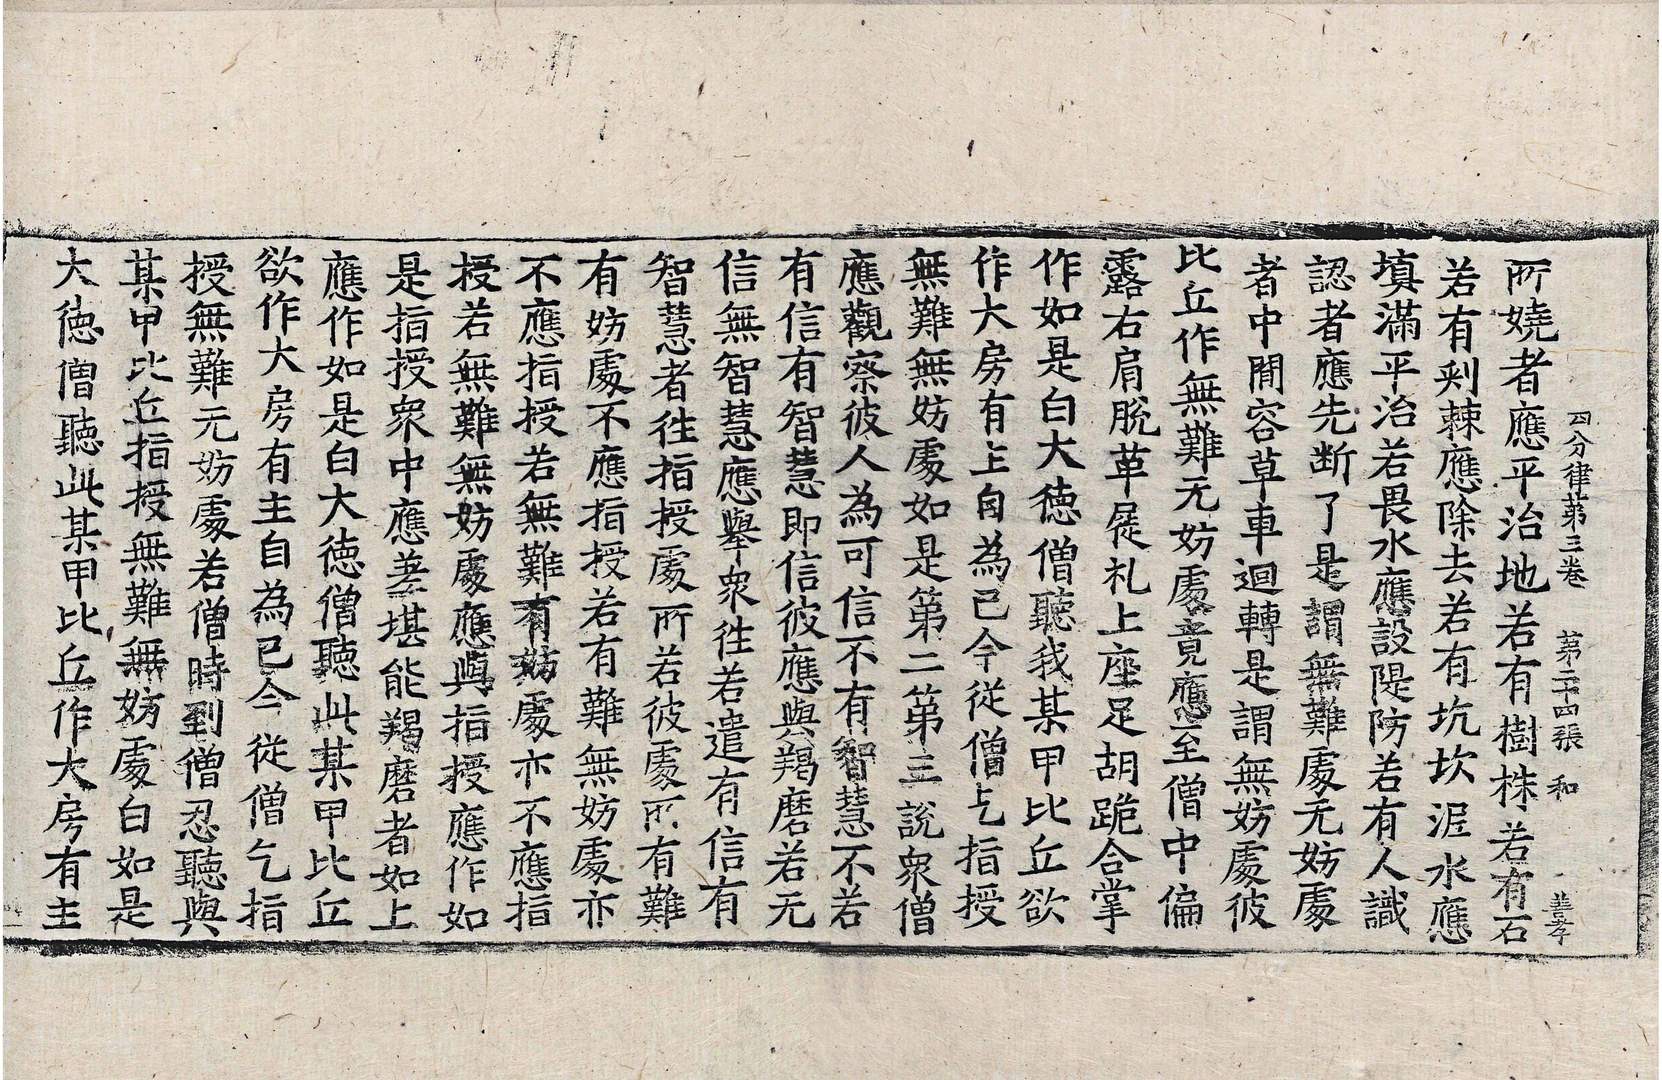 四分律第三卷 第二十四張 和 善孝
所嬈者應平治地若有樹株若有石
若有刾棘應除去若有坑坎渥水應
填滿平治若畏水應設隄防若有人識
認者應先断了是謂無難處无妨處
者中閒容草車迴轉是謂無妨處彼
比丘作無難无妨處竟應至僧中偏
露右肩脫革屣礼上座足胡跪合掌
作如是白大德僧聽我某甲比丘欲
作大房有主自為己今從僧乞指授
無難無妨處如是第二第三說衆僧
應觀察彼人為可信不有智慧不若
有信有智慧即信彼應與羯磨若无
信無智慧應舉衆徃若遣有信有
智慧者徃指授處所若彼處所有難
有妨處不應指授若有難無妨處亦
不應指授若無難有妨處亦不應指
授若無難無妨處應與指授應作如
是指授衆中應差堪能羯磨者如上
應作如是白大徳僧聽此某甲比丘
欲作大房有主自為已今從僧乞指
授無難无妨處若僧時到僧忍聽與
某甲比丘指授無難無妨處白如是
大徳僧聽此某甲比丘作大房有主